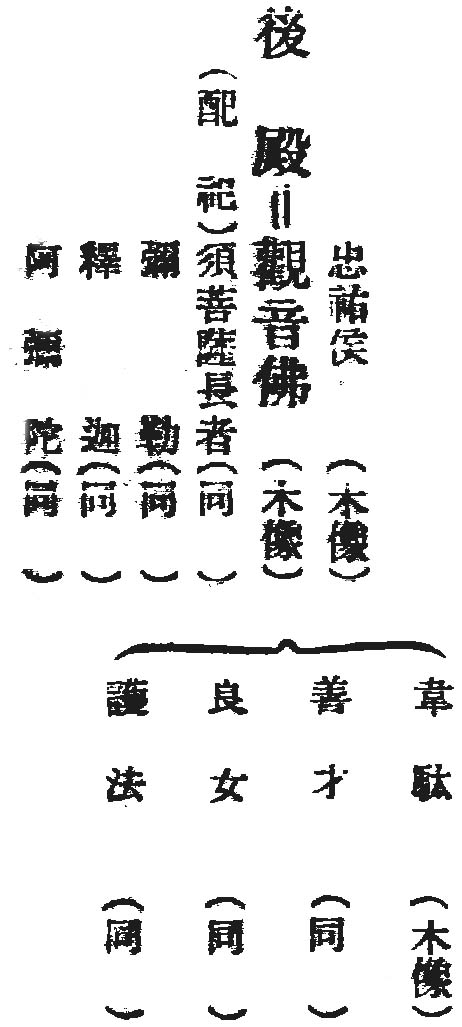 忠祐侯(木像)
後殿=觀音佛(木像)
(配祀)須菩薩長者(同)
彌勒(同)
釋迦(同)
阿彌陀(同)
韋馱(木像)
善才(同)
良女(同)
護法(同)